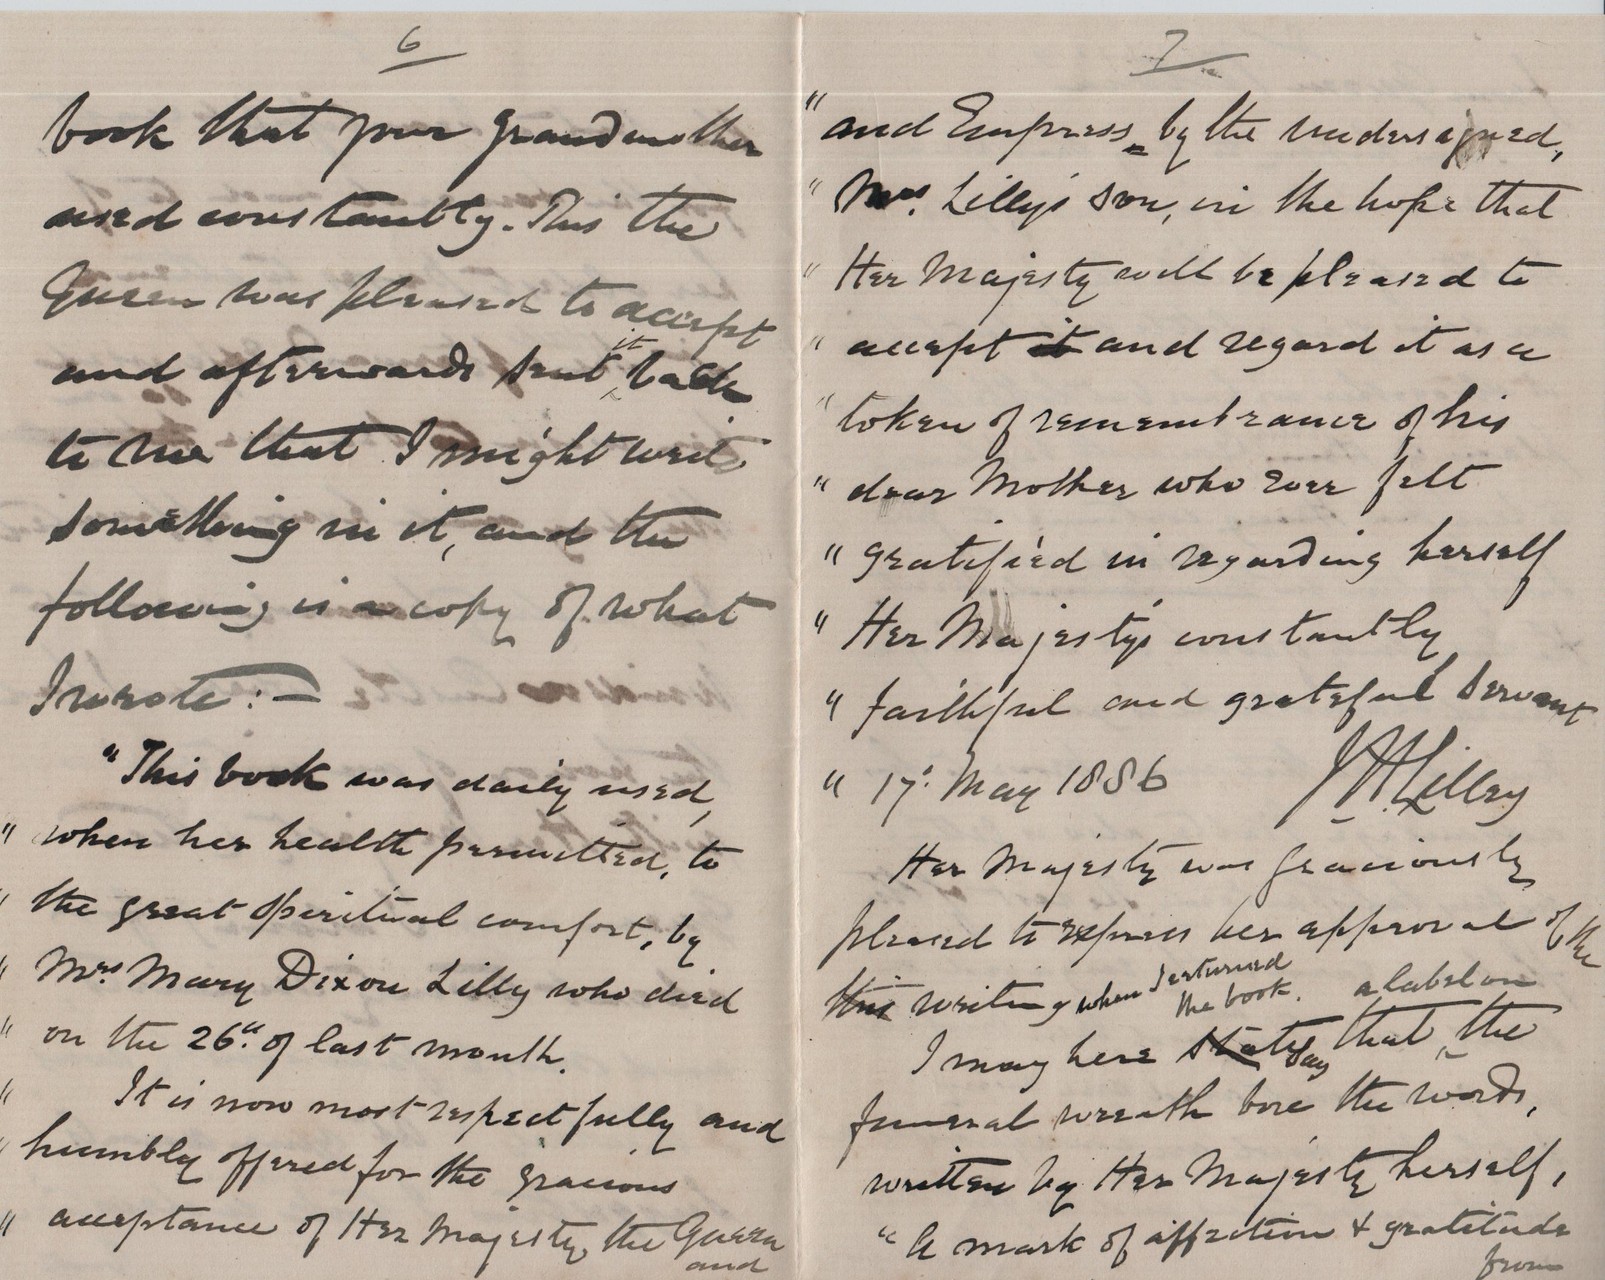 6
book that your grandmother
used constantly. This the
Queen was pleased to accept
and afterwards sent it back
to me that I might write
something in it, and the
following is a copy of what
I wrote:—
"This book was daily used,
" when her health permitted, to
" the great spiritual comfort, by
" Mrs Mary Dixon Lilly who died
" on the 26th of last month.
" It is now most respectfully and
" humbly offered for the gracious
" acceptance of Her Majesty the Queen
and
7
" and Empress, by the undersigned,
" Mrs. Lilly's son, in the hope that
" Her Majesty will be pleased to
" accept it and regard it as a
" token of remembrance of his
" dear Mother who ever felt
" gratified in regarding herself
" Her Majesty's constantly
" faithful and grateful servant
" 17. May 1886 Lilley
Her Majesty was graciously
pleased to express her approval of the
this writing when I returned
the book. a label on
I may here state say that the
funeral wreath bore the words,
written by Her Majesty herself,
"A mark of affection & gratitude
from